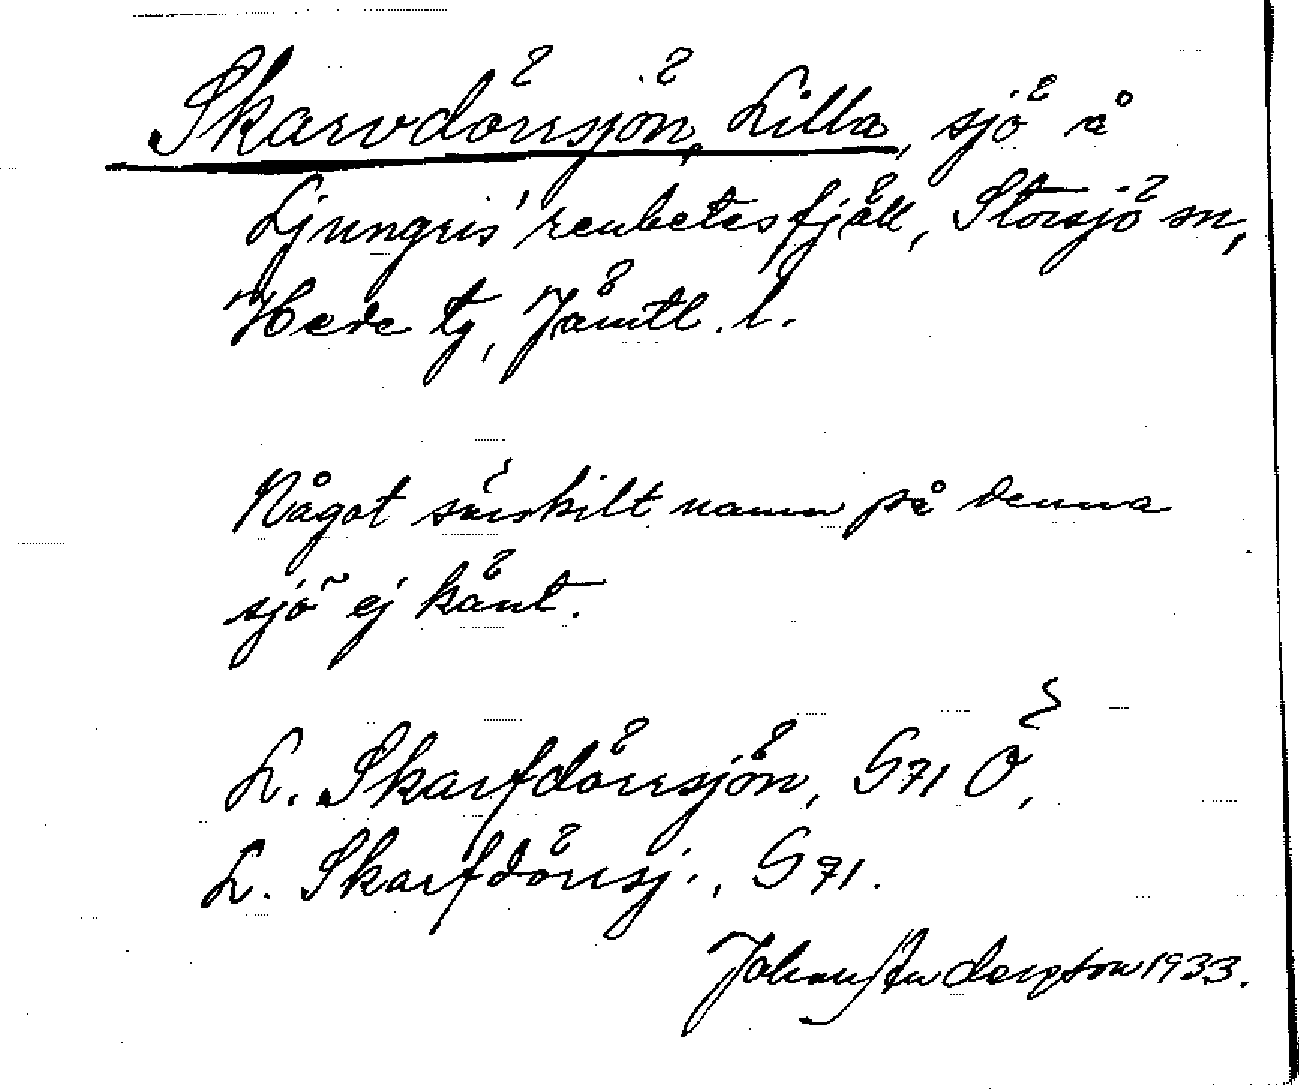 Skarvdörrsjön, Lilla, sjö å
Ljungris' renbetesfjäll, Storsjö sn,
Hede tg, Jämtl. l.
Något särskilt namn på denna
sjö ej känt.
L. Skarfdörrsjön, G71 Ö,
L. Skarfdörrsj., G71.
Johan Anderzson 1933.